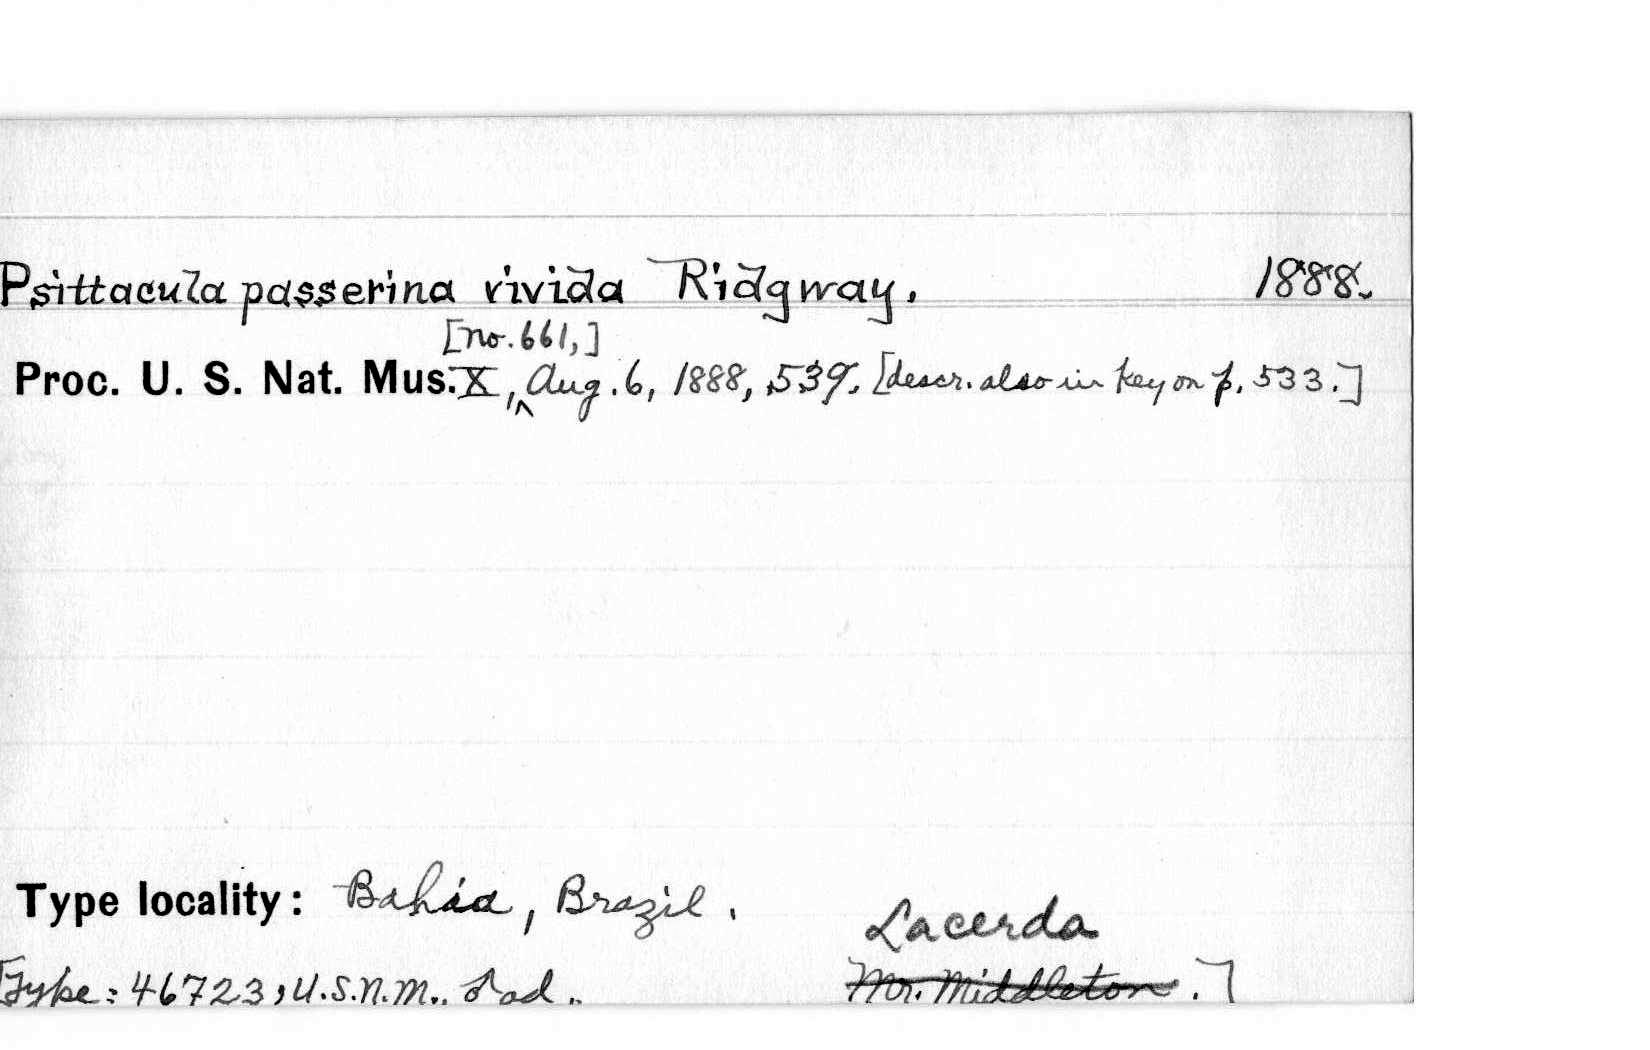 Psittacula passerina vivida Ridgway. 1888.
[no. 661,]
Proc. U. S. Nat. Mus. X, ^ Aug. 6, 1888, 539. [descr. also in key on p. 533.]
Type locality: Bahia, Brazil.
Lacerda
[Type: 46723, U.S.N.M., ♂ ad., Mr. Middleton.]